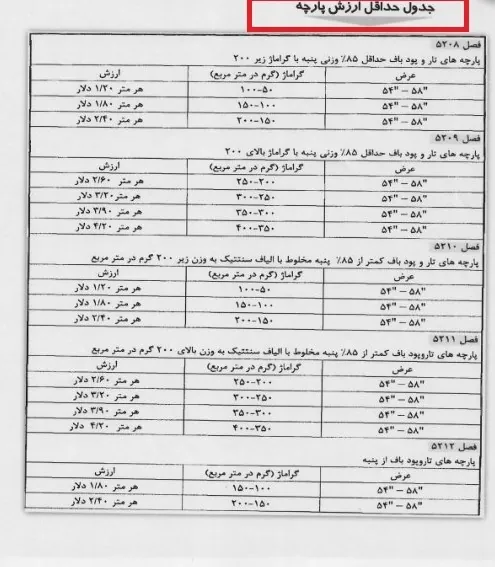 جدول حداقل ارزش پارچه
فصل ۵۲۰۸
پارچه های تار و پود باف حداقل ۸۵٪ وزنی پنبه با گراماژ زیر ۲۰۰
عرض گراماژ (گرم در متر مربع) ارزش
۵۴" – ۵۸" ۱۰۰-۵۰ هر متر ۱/۲۰ دلار
۵۴" – ۵۸" ۱۵۰-۱۰۰ هر متر ۱/۸۰ دلار
۵۴" – ۵۸" ۲۰۰-۱۵۰ هر متر ۲/۴۰ دلار
فصل ۵۲۰۹
پارچه های تار و پود باف حداقل ۸۵٪ وزنی پنبه با گراماژ بالای ۲۰۰
عرض گراماژ (گرم در متر مربع) ارزش
۵۴" – ۵۸" ۲۵۰-۲۰۰ هر متر ۲/۶۰ دلار
۵۴" – ۵۸" ۳۰۰-۲۵۰ هر متر ۳/۲۰ دلار
۵۴" – ۵۸" ۳۵۰-۳۰۰ هر متر ۳/۹۰ دلار
۵۴" – ۵۸" ۴۰۰-۳۵۰ هر متر ۴/۲۰ دلار
فصل ۵۲۱۰
پارچه های تار و پود باف کمتر از ۸۵٪ پنبه مخلوط با الیاف سنتتیک به وزن زیر ۲۰۰ گرم در متر مربع
عرض گراماژ (گرم در متر مربع) ارزش
۵۴" – ۵۸" ۱۰۰-۵۰ هر متر ۱/۲۰ دلار
۵۴" – ۵۸" ۱۵۰-۱۰۰ هر متر ۱/۸۰ دلار
۵۴" – ۵۸" ۲۰۰-۱۵۰ هر متر ۲/۴۰ دلار
فصل ۵۲۱۱
پارچه های تاروپود باف کمتر از ۸۵٪ پنبه مخلوط با الیاف سنتتیک به وزن بالای ۲۰۰ گرم در متر مربع
عرض گراماژ (گرم در متر مربع) ارزش
۵۴" – ۵۸" ۲۵۰-۲۰۰ هر متر ۲/۶۰ دلار
۵۴" – ۵۸" ۳۰۰-۲۵۰ هر متر ۳/۲۰ دلار
۵۴" – ۵۸" ۳۵۰-۳۰۰ هر متر ۳/۹۰ دلار
۵۴" – ۵۸" ۴۰۰-۳۵۰ هر متر ۴/۲۰ دلار
فصل ۵۲۱۲
پارچه های تاروپود باف از پنبه
عرض گراماژ (گرم در متر مربع) ارزش
۵۴" – ۵۸" ۱۵۰-۱۰۰ هر متر ۱/۸۰ دلار
۵۴" – ۵۸" ۲۰۰-۱۵۰ هر متر ۲/۴۰ دلار